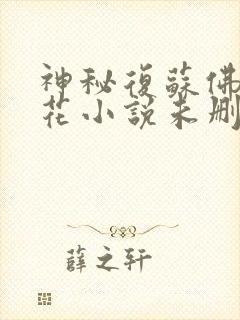 神秘復蘇佛
花小說未刪
薛之轩